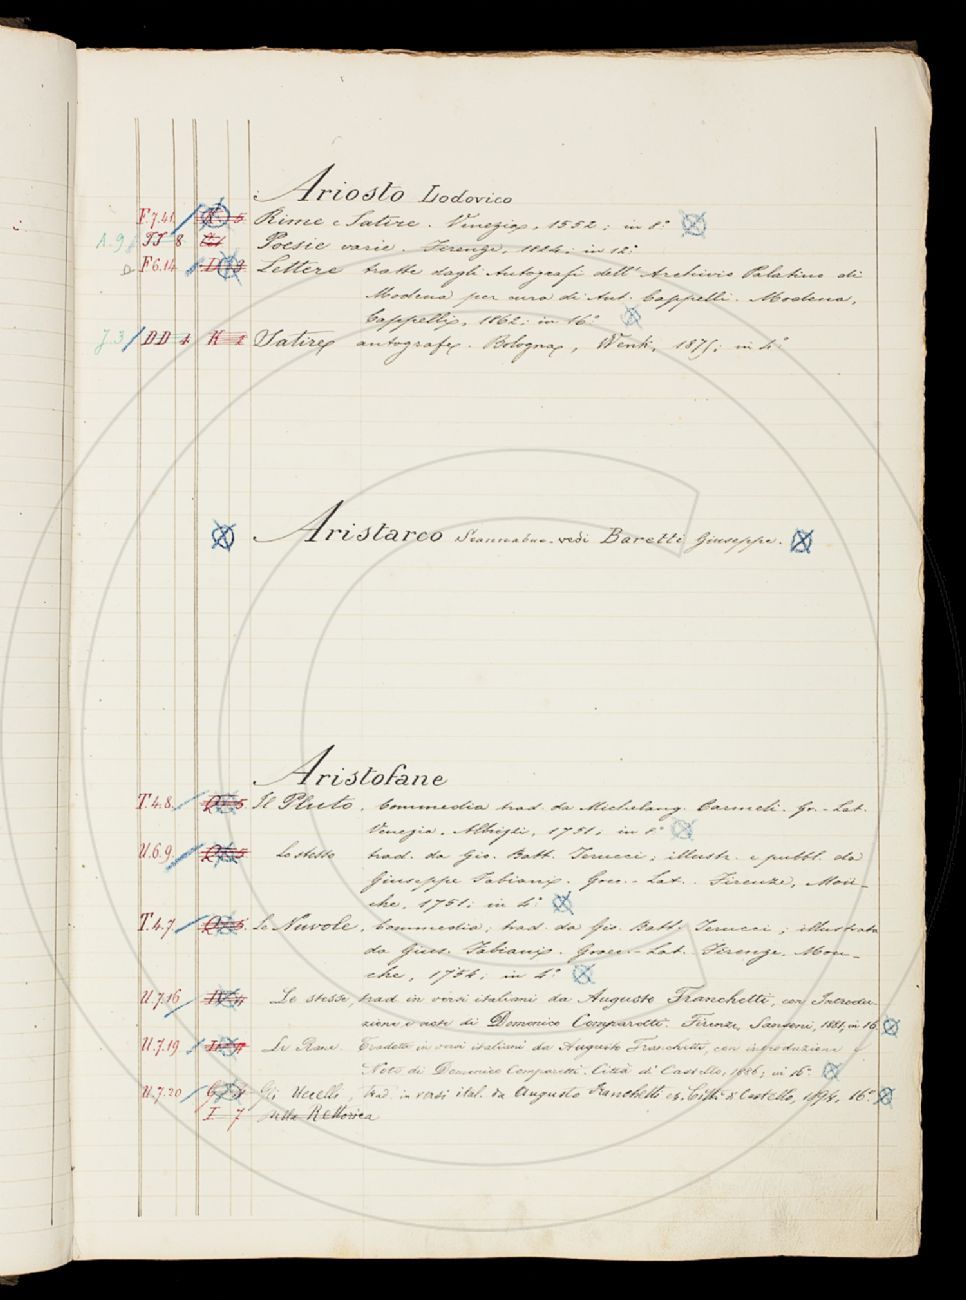 Ariosto Lodovico
F.7.41 5 Rime e Satire. Venezia, 1552; in 8°
A.9 TT 8 Poesie varie. Firenze, 1824; in 12°
F6.14 Lettere tratte dagli Autografi dell' Archivio Palatino di
Modena per cura di Ant. Cappelli. Modena,
Cappelli, 1862; in 16°
J.3 DD 4 K 2 Satire autografe. Bologna, Wenk, 1875; in 4°
Aristarco Scannabue. vedi Baretti Giuseppe.
Aristofane
T.4.8. 5 Il Pluto. Commedia trad. da Michelang. Carmeli. Gr.-Lat.
Venezia, 1751; in 8°
U.6.9 5 Lo stesso trad. da Gio. Batt. Terucci; illustr. e pubbl. da
Giuseppe Fabiani. Grec.-Lat. Firenze, Mou-
che, 1751; in 4°
T.4.7 5 Le Nuvole. Commedia; trad. da Gio. Batt. Terucci; illustrata
da Gius. Fabiani. Grec.-Lat. Firenze, Mou-
che, 1754; in 4°
U.7.16 Le stesse, trad in versi italiani da Augusto Franchetti, con Introdu-
zione e note di Domenico Comparetti. Firenze, Sansoni, 1881, in 16.
U.7.19 Le Rane. Tradotte in versi italiani da Augusto Franchetti, con introduzione e
Note di Domenico Comparetti. Città di Castello, 1886; in 16°
U.7.20 Gli Uccelli, trad. in versi ital. da Augusto Franchetti Città di Castello, 1894, 16.°
I 7 Della Rettorica